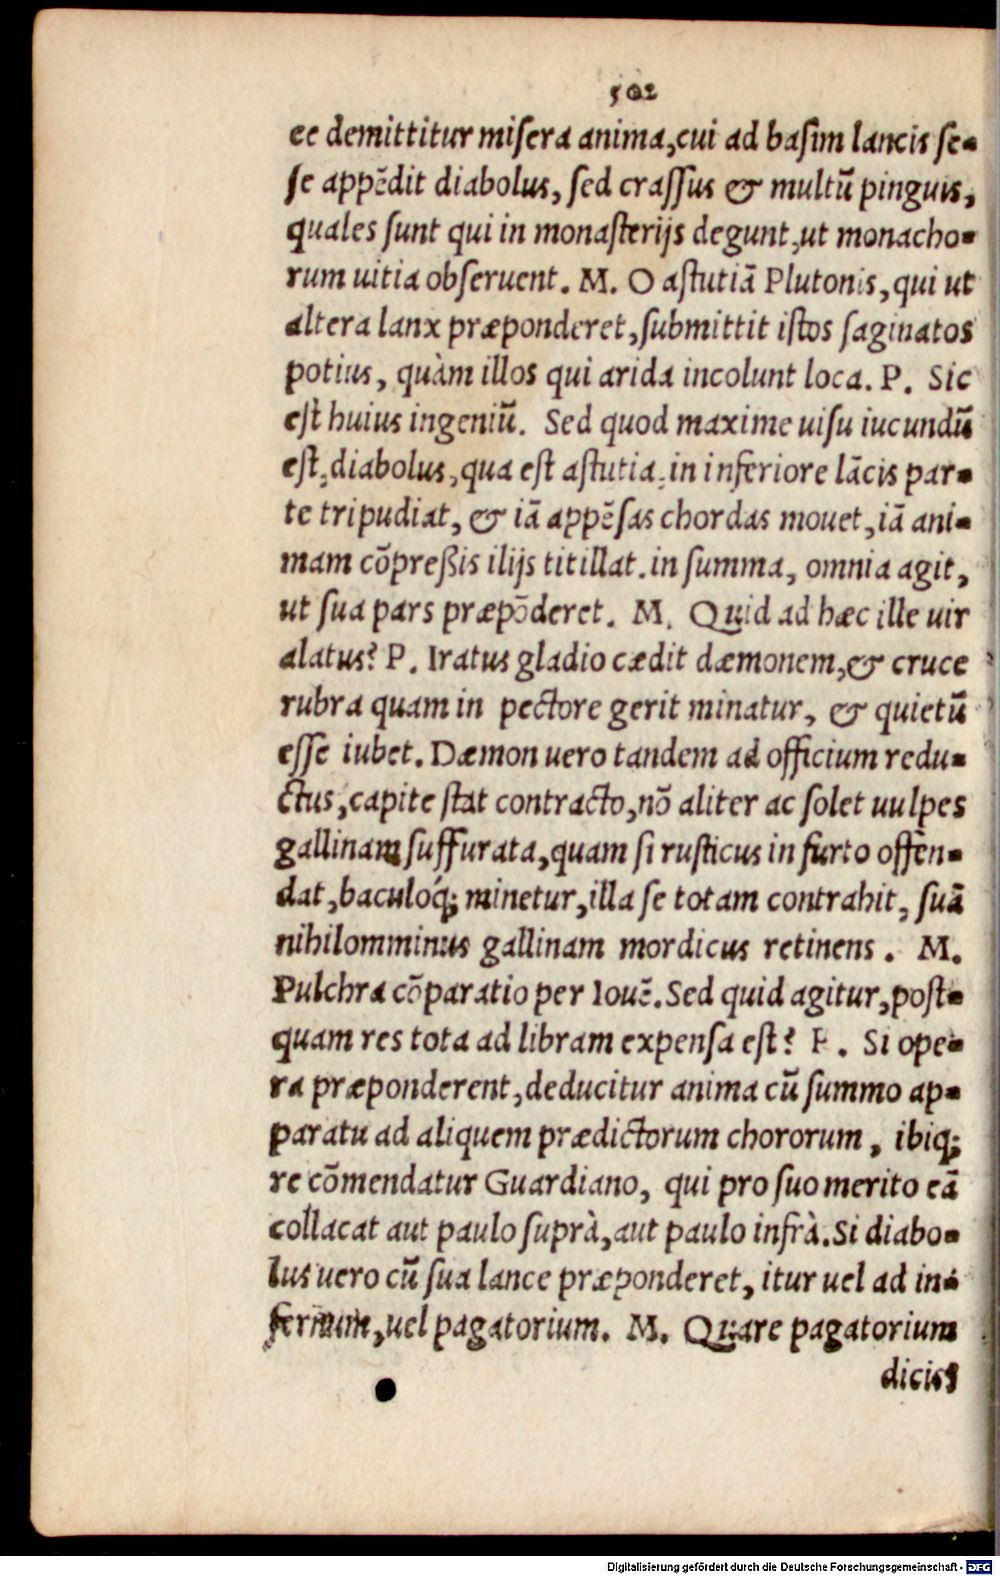 502
ec demittitur misera anima, cui ad basim lancis se-
se appēdit diabolus, sed crassus & multū pinguis,
quales sunt qui in monasterijs degunt, ut monacho-
rum uitia obseruent. M. O astutiā Plutonis, qui ut
altera lanx præponderet, submittit istos saginatos
potius, quàm illos qui arida incolunt loca. P. Sic
est huius ingeniū. Sed quod maxime uisu iucundū
est, diabolus, qua est astutia, in inferiore lācis par-
te tripudiat, & iā appēsas chordas mouet, iā ani-
mam cōpreßis ilijs titillat. in summa, omnia agit,
ut sua pars præpōderet. M. Quid ad hæc ille uir
alatus? P. Iratus gladio cædit dæmonem, & cruce
rubra quam in pectore gerit minatur, & quietū
esse iubet. Dæmon uero tandem ad officium redu-
ctus, capite stat contracto, nō aliter ac solet uulpes
gallinam suffurata, quam si rusticus in furto offen-
dat, baculóq; minetur, illa se totam contrahit, suā
nihilomminus gallinam mordicus retinens. M.
Pulchra cōparatio per Iouē. Sed quid agitur, post-
quam res tota ad libram expensa est? P. Si ope-
ra præponderent, deducitur anima cū summo ap-
paratu ad aliquem prædictorum chororum, ibiq;
re cōmendatur Guardiano, qui pro suo merito eā
collacat aut paulo suprà, aut paulo infrà. Si diabo-
lus uero cū sua lance præponderet, itur uel ad in-
fernum, uel pagatorium. M. Quare pagatorium
dicis?
Digitalisierung gefördert durch die Deutsche Forschungsgemeinschaft - DFG